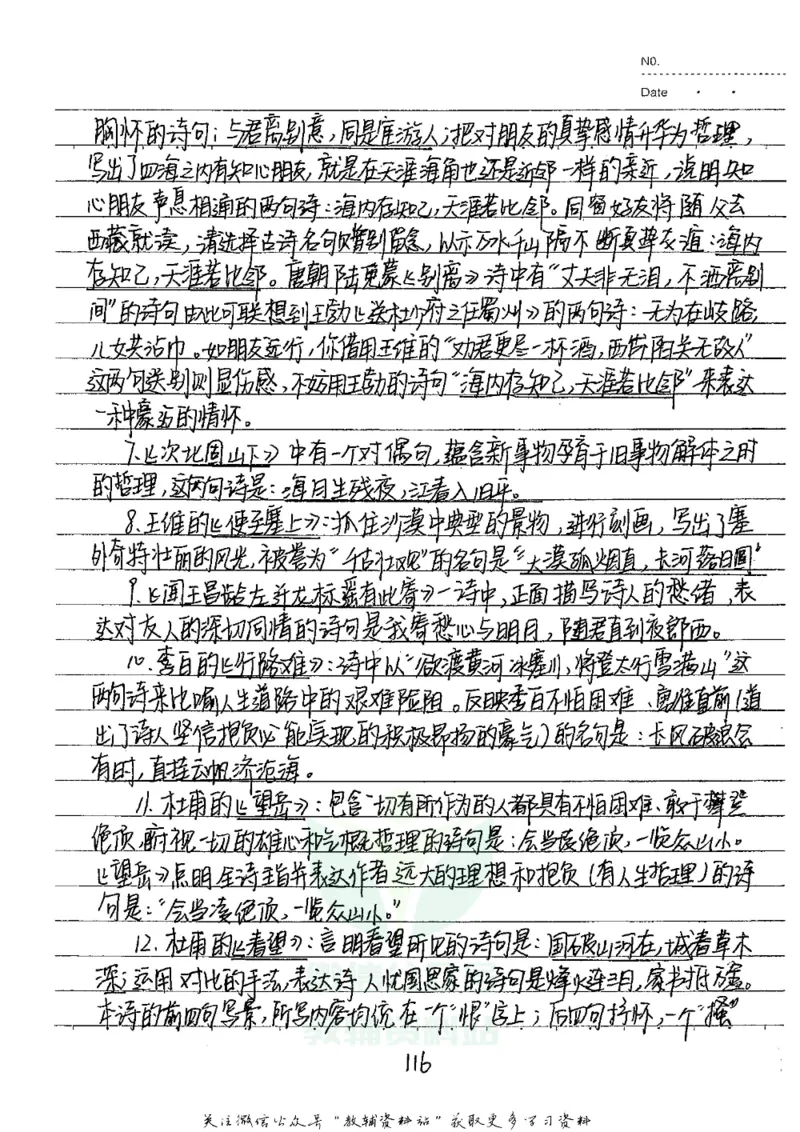 NO.
Date
胸怀的诗句；与君离别意，同是宦游人；把对朋友的真挚感情升华为哲理，
写出了四海之内有知心朋友，就是在天涯海角也还是近邻一样的亲近，说明知
心朋友声息相通的两句诗：海内存知己，天涯若比邻。同窗好友将随父去
西藏就读，请选择古诗名句赠别留念，以示万水千山隔不断真挚友谊：海内
存知己，天涯若比邻。唐朝陆龟蒙《别离》诗中有“丈夫非无泪，不洒离别
间”的诗句由此可联想到王勃《送杜少府之任蜀州》的两句诗：无为在岐路，
儿女共沾巾。如朋友远行，你借用王维的“劝君更尽一杯酒，西出阳关无故人”
这两句送别则显伤感，不妨用王勃的诗句“海内存知己，天涯若比邻”来表达
一种豪迈的情怀。
7.《次北固山下》中有一个对偶句，蕴含新事物孕育于旧事物解体之时
的哲理，这两句诗是：海日生残夜，江春入旧年。
8.王维的《使至塞上》：抓住沙漠中典型的景物，进行刻画，写出了塞
外奇特壮丽的风光，被誉为“千古壮观”的名句是“大漠孤烟直，长河落日圆”
9.《闻王昌龄左迁龙标遥有此寄》一诗中，正面描写诗人的愁绪，表
达对友人的深切同情的诗句是我寄愁心与明月，随君直到夜郎西。
10.李白的《行路难》：诗中以“欲渡黄河冰塞川，将登太行雪满山”这
两句诗来比喻人生道路中的艰难险阻。反映李白不怕困难、勇往直前（道
出了诗人坚信抱负必能实现的积极昂扬的豪气）的名句是：长风破浪会
有时，直挂云帆济沧海。
11.杜甫的《望岳》：包含一切有所作为的人都具有不怕困难、敢于攀登
绝顶，俯视一切的雄心和气概哲理的诗句是：会当凌绝顶，一览众山小。
《望岳》点明全诗主旨并表达作者远大的理想和抱负（有人生哲理）的诗
句是：“会当凌绝顶，一览众山小。”
12.杜甫的《春望》：言明春望所见的诗句是：国破山河在，城春草木
深；运用对比的手法，表达诗人忧国思家的诗句是烽火连三月，家书抵万金。
本诗的前四句写景，所写内容均统在一个“恨”字上；后四句抒怀，一个“搔”
教辅资料站
116
关注微信公众号“教辅资料站”获取更多学习资料